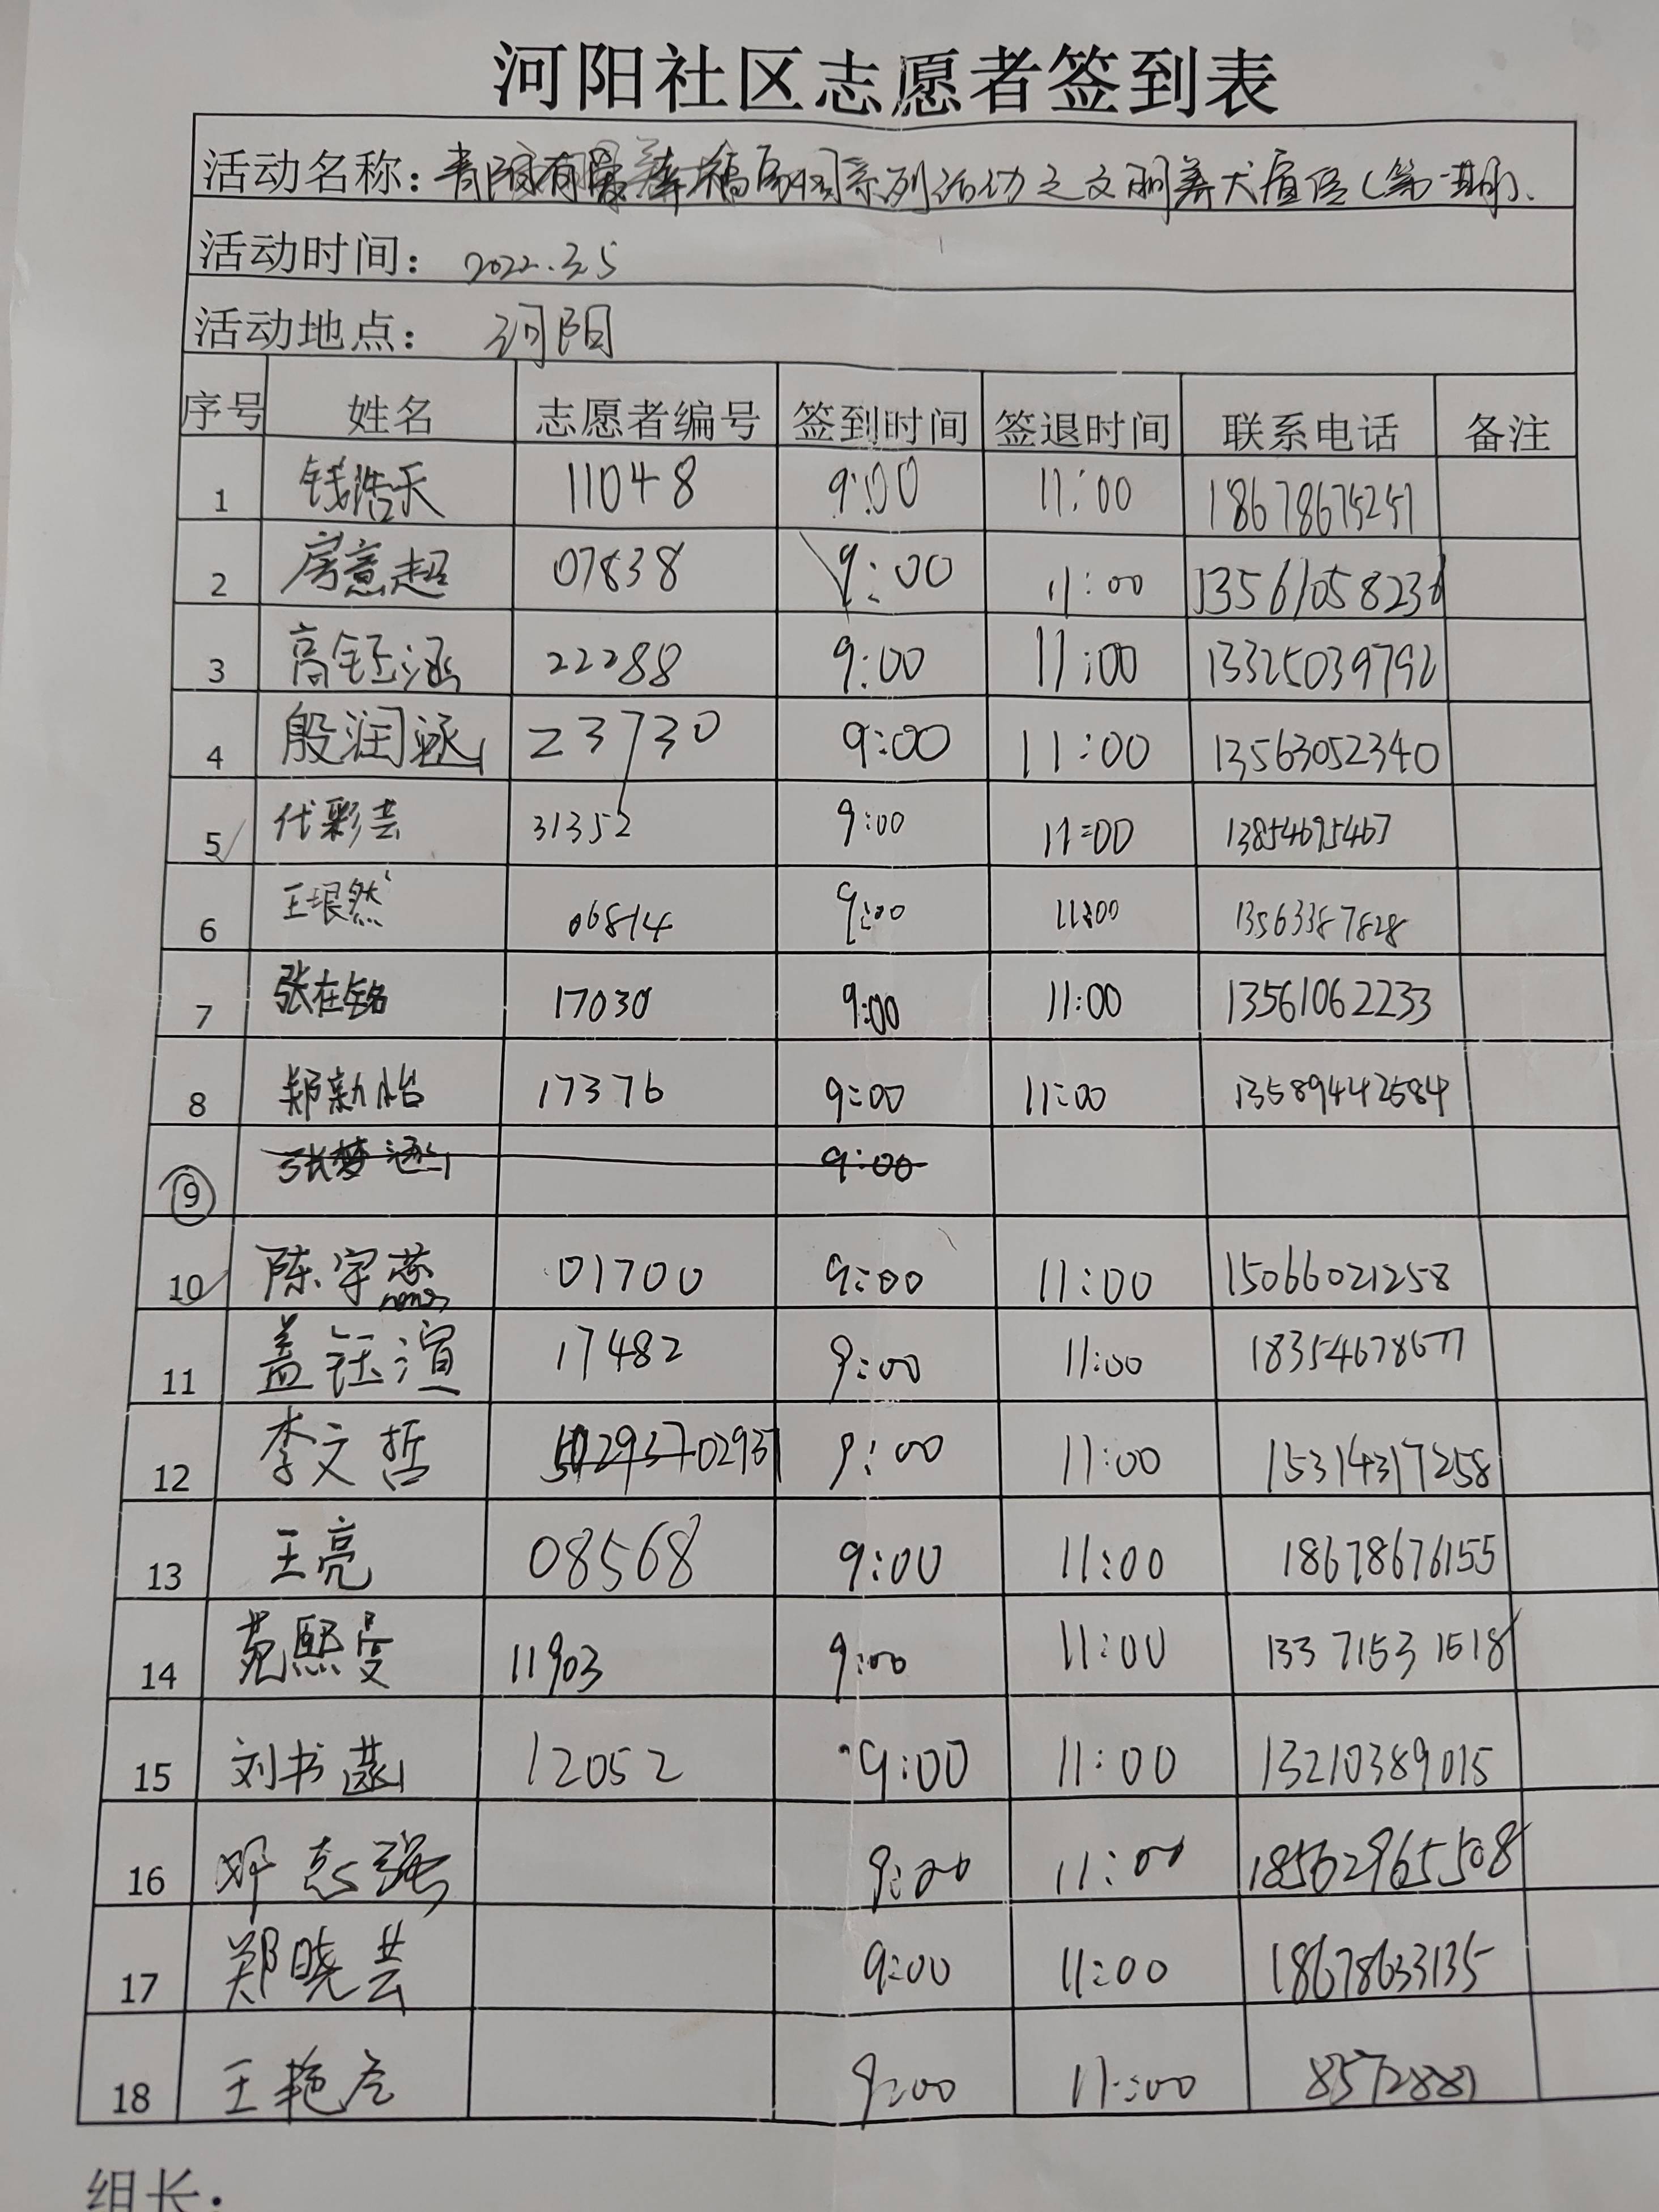 河阳社区志愿者签到表
活动名称：系列活动之文明养犬宣传（第一期）.
活动时间：2022.3.5
活动地点：河阳
序号 姓名 志愿者编号 签到时间 签退时间 联系电话 备注
1 钱浩天 11048 9:00 11:00 18678675251
2 房意超 07838 9:00 11:00 13561058236
3 高钰涵 22288 9:00 11:00 13325039792
4 殷润涵 23730 9:00 11:00 13563052340
5 代彩芸 31352 9:00 11:00 13854695467
6 王珢然 06814 9:00 11:00 13563387828
7 张在铭 17030 9:00 11:00 13561062233
8 郑新怡 17376 9:00 11:00 13589442584
9 张梦涵 9:00
10 陈宇蕊 01700 9:00 11:00 15066021258
11 盖钰渲 17482 9:00 11:00 18354678677
12 李文哲 02937 9:00 11:00 15314317258
13 王亮 08568 9:00 11:00 18678676155
14 苑熙曼 11903 9:00 11:00 13371531518
15 刘书菡 12052 9:00 11:00 13210389015
16 邓志强 9:00 11:00 18562965508
17 郑晓芸 9:00 11:00 18678633135
18 王艳 9:00 11:00 8572881
组长：